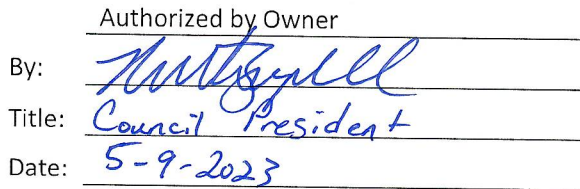 Authorized by Owner
By:
Title: Council President
Date: 5-9-2023